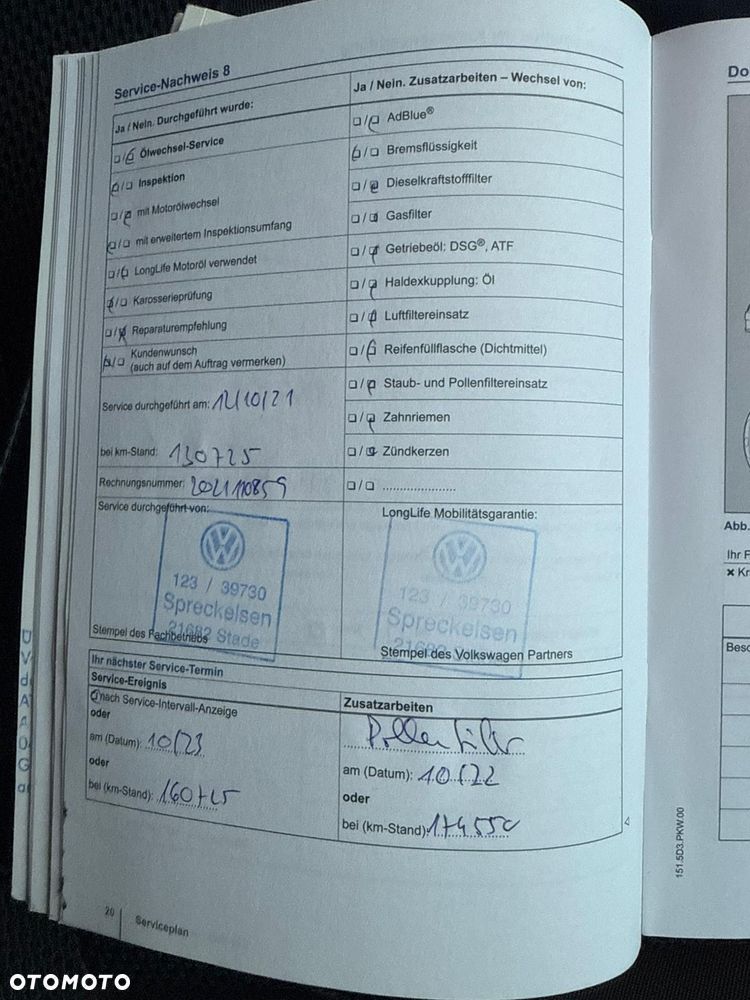 Service-Nachweis 8
Ja / Nein. Durchgeführt wurde:
Ölwechsel-Service
Inspektion
mit Motorölwechsel
mit erweitertem Inspektionsumfang
LongLife Motoröl verwendet
Karosserieprüfung
Reparaturempfehlung
Kundenwunsch
(auch auf dem Auftrag vermerken)
Service durchgeführt am: 12/10/21
bei km-Stand: 130725
Rechnungsnummer: 2021110859
Service durchgeführt von:
123 / 39730
Spreckelsen
21682 Stade
Stempel des Fachbetriebs
Ja / Nein. Zusatzarbeiten – Wechsel von:
AdBlue®
Bremsflüssigkeit
Dieselkraftstofffilter
Gasfilter
Getriebeöl: DSG®, ATF
Haldexkupplung: Öl
Luftfiltereinsatz
Reifenfüllflasche (Dichtmittel)
Staub- und Pollenfiltereinsatz
Zahnriemen
Zündkerzen
....................
LongLife Mobilitätsgarantie:
123 / 39730
Spreckelsen
Stempel des Volkswagen Partners
Ihr nächster Service-Termin
Service-Ereignis
nach Service-Intervall-Anzeige
oder
am (Datum): 10/23
oder
bei (km-Stand): 160725
Zusatzarbeiten
Pollenfilter
am (Datum): 10/22
oder
bei (km-Stand): 174550
20 Serviceplan
151.5D3.PKW.00
Do
Abb.
Ihr F
✖ Kr
Besc
OTOMOTO